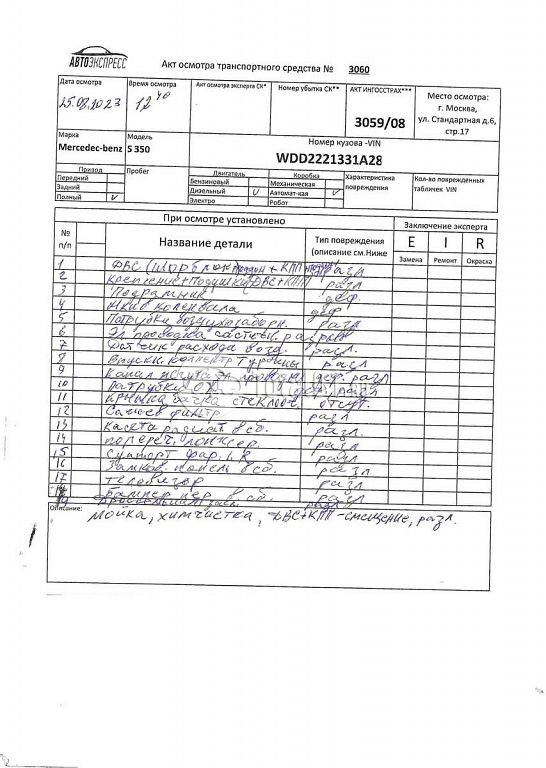 АВТОЭКСПРЕСС
Акт осмотра транспортного средства № 3060
Дата осмотра
25.08.2023
Время осмотра
12 40
Акт осмотра эксперта СК*
Номер убытка СК**
АКТ ИНГОССТРАХ***
3059/08
Место осмотра:
г. Москва,
ул. Стандартная д.6,
стр.17
Марка
Mercedec-benz
Модель
S 350
Номер кузова -VIN
WDD2221331A28
Привод
Передний
Задний
Полный V
Пробег
Двигатель
Бензиновый
Дизельный V
Электро
Коробка
Механическая
Автомат-кая V
Робот
Характеристика
повреждения
Кол-во поврежденных
табличек VIN
При осмотре установлено
Заключение эксперта
№
п/п
Название детали
Тип повреждения
(описание см.Ниже
E I R
Замена Ремонт Окраска
1 ДВС (шорблок поддон + КПП разл
2 Крепление+Подушки(ДВС+КПП) разл
3 Подрамник деф.
4 Шкив коленвала деф
5 Патрубки воздухозаборн. разл
6 Эл проводка частичн. разрыв
7 Датчик расхода возд. разл.
8 Впускн. коллектр турбины разл
9 Канал деф. разл
10 Патрубки ОЖ деф, разл
11 крышка бачка стеклоом. отсут.
12 Сажев фильтр разл
13 Касета радиат в сб. разл.
14 попереч. лонжер. разл
15 Суппорт фар. L R разл
16 Замков. панель в сб. разл
17 телевизор разл
18 бампер пер в сб. разл
19 разл
Описание:
мойка, химчистка, ДВС+КПП-смещение, разл.